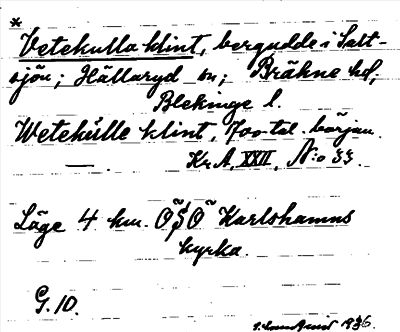 *
Vetekulla klint, bergudde i Salt-
sjön; Hällaryd sn; Bräkne hd;
Blekinge l.
Wetekülle klint, 700-tal. början.
— Kr. A, XXII, N:o 33.
Läge 4 km. OSO Karlshamns
kyrka.
G. 10.
1936.